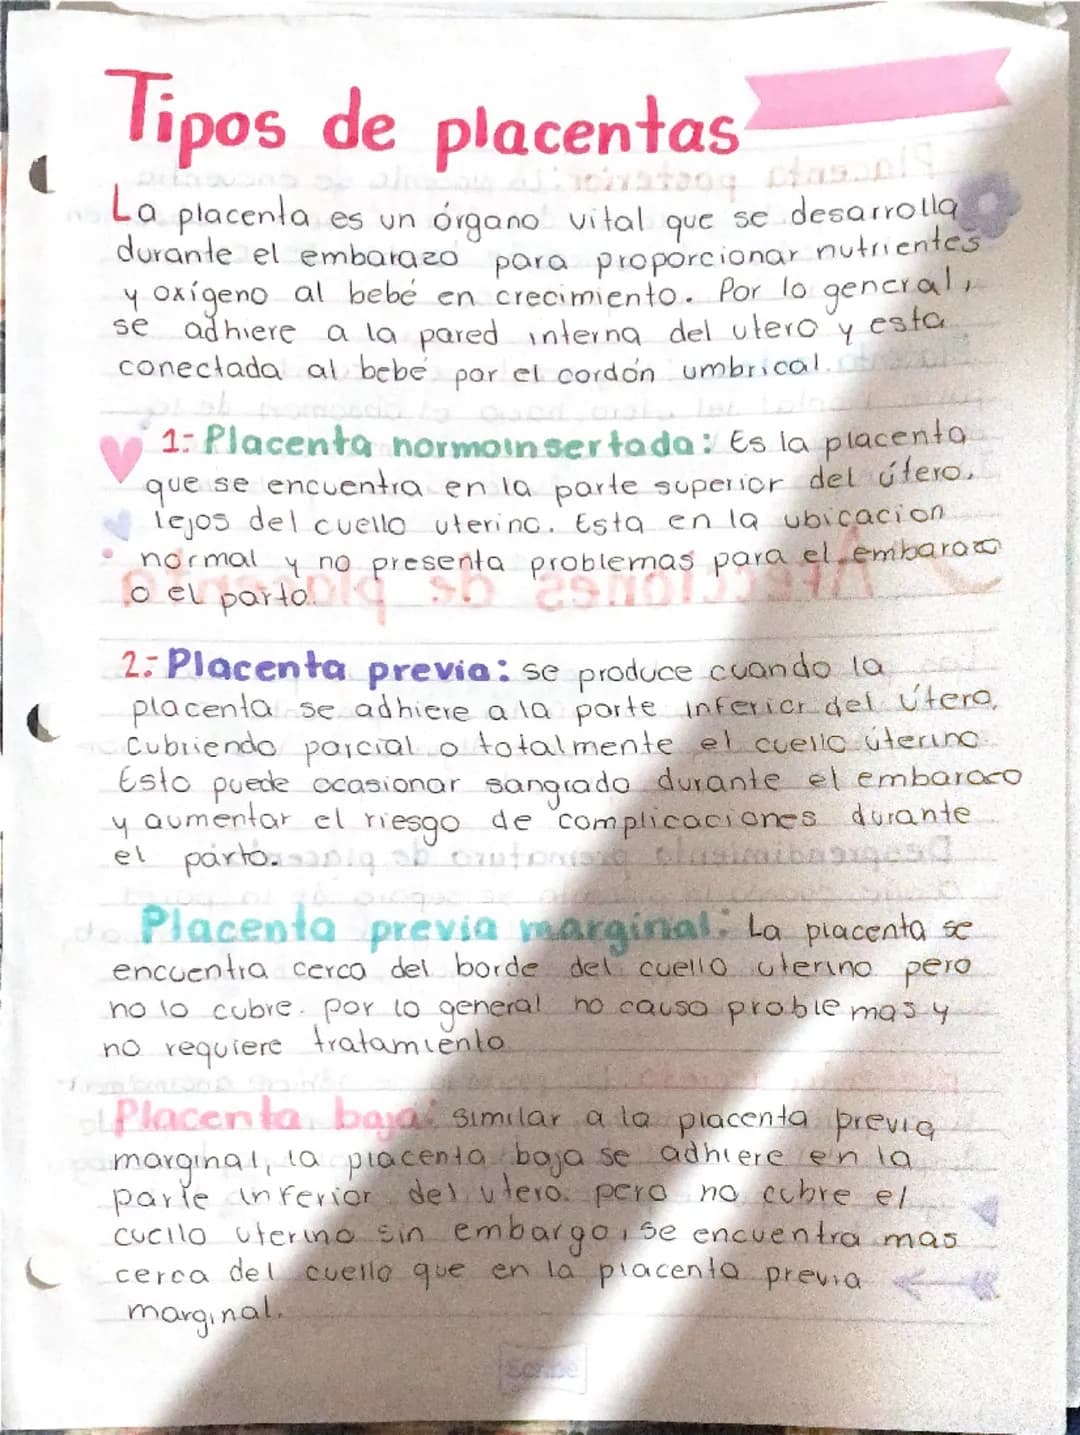 Tipos de placentas
La placenta es un órgano vital que se desarrolla
durante el embarazo para proporcionar nutrientes
y oxígeno al bebé en crecimiento. Por lo general,
se adhiere a la pared interna del utero y esta
conectada al bebé por el cordón umbrical.
1.- Placenta normoinsertada: Es la placenta
que se encuentra en la parte superior del útero,
lejos del cuello uterino. Esta en la ubicacion
normal y no presenta problemas para el embarazo
o el parto.
2.- Placenta previa: se produce cuando la
placenta se adhiere a la parte inferior del útero,
Cubriendo parcial o totalmente el cuello úterino
Esto puede ocasionar sangrado durante el embarazo
y aumentar el riesgo de complicaciones durante
el parto.
Placenta previa marginal: La placenta se
encuentra cerca del borde del cuello uterino pero
no lo cubre. por lo general no causa problemas y
no requiere tratamiento
Placenta baja: similar a la placenta previa
marginal, la placenta baja se adhiere en la
parte inferior del utero. pero no cubre el
cuello uterino sin embargo, se encuentra mas
cerca del cuello que en la placenta previa
marginal.
Scribe